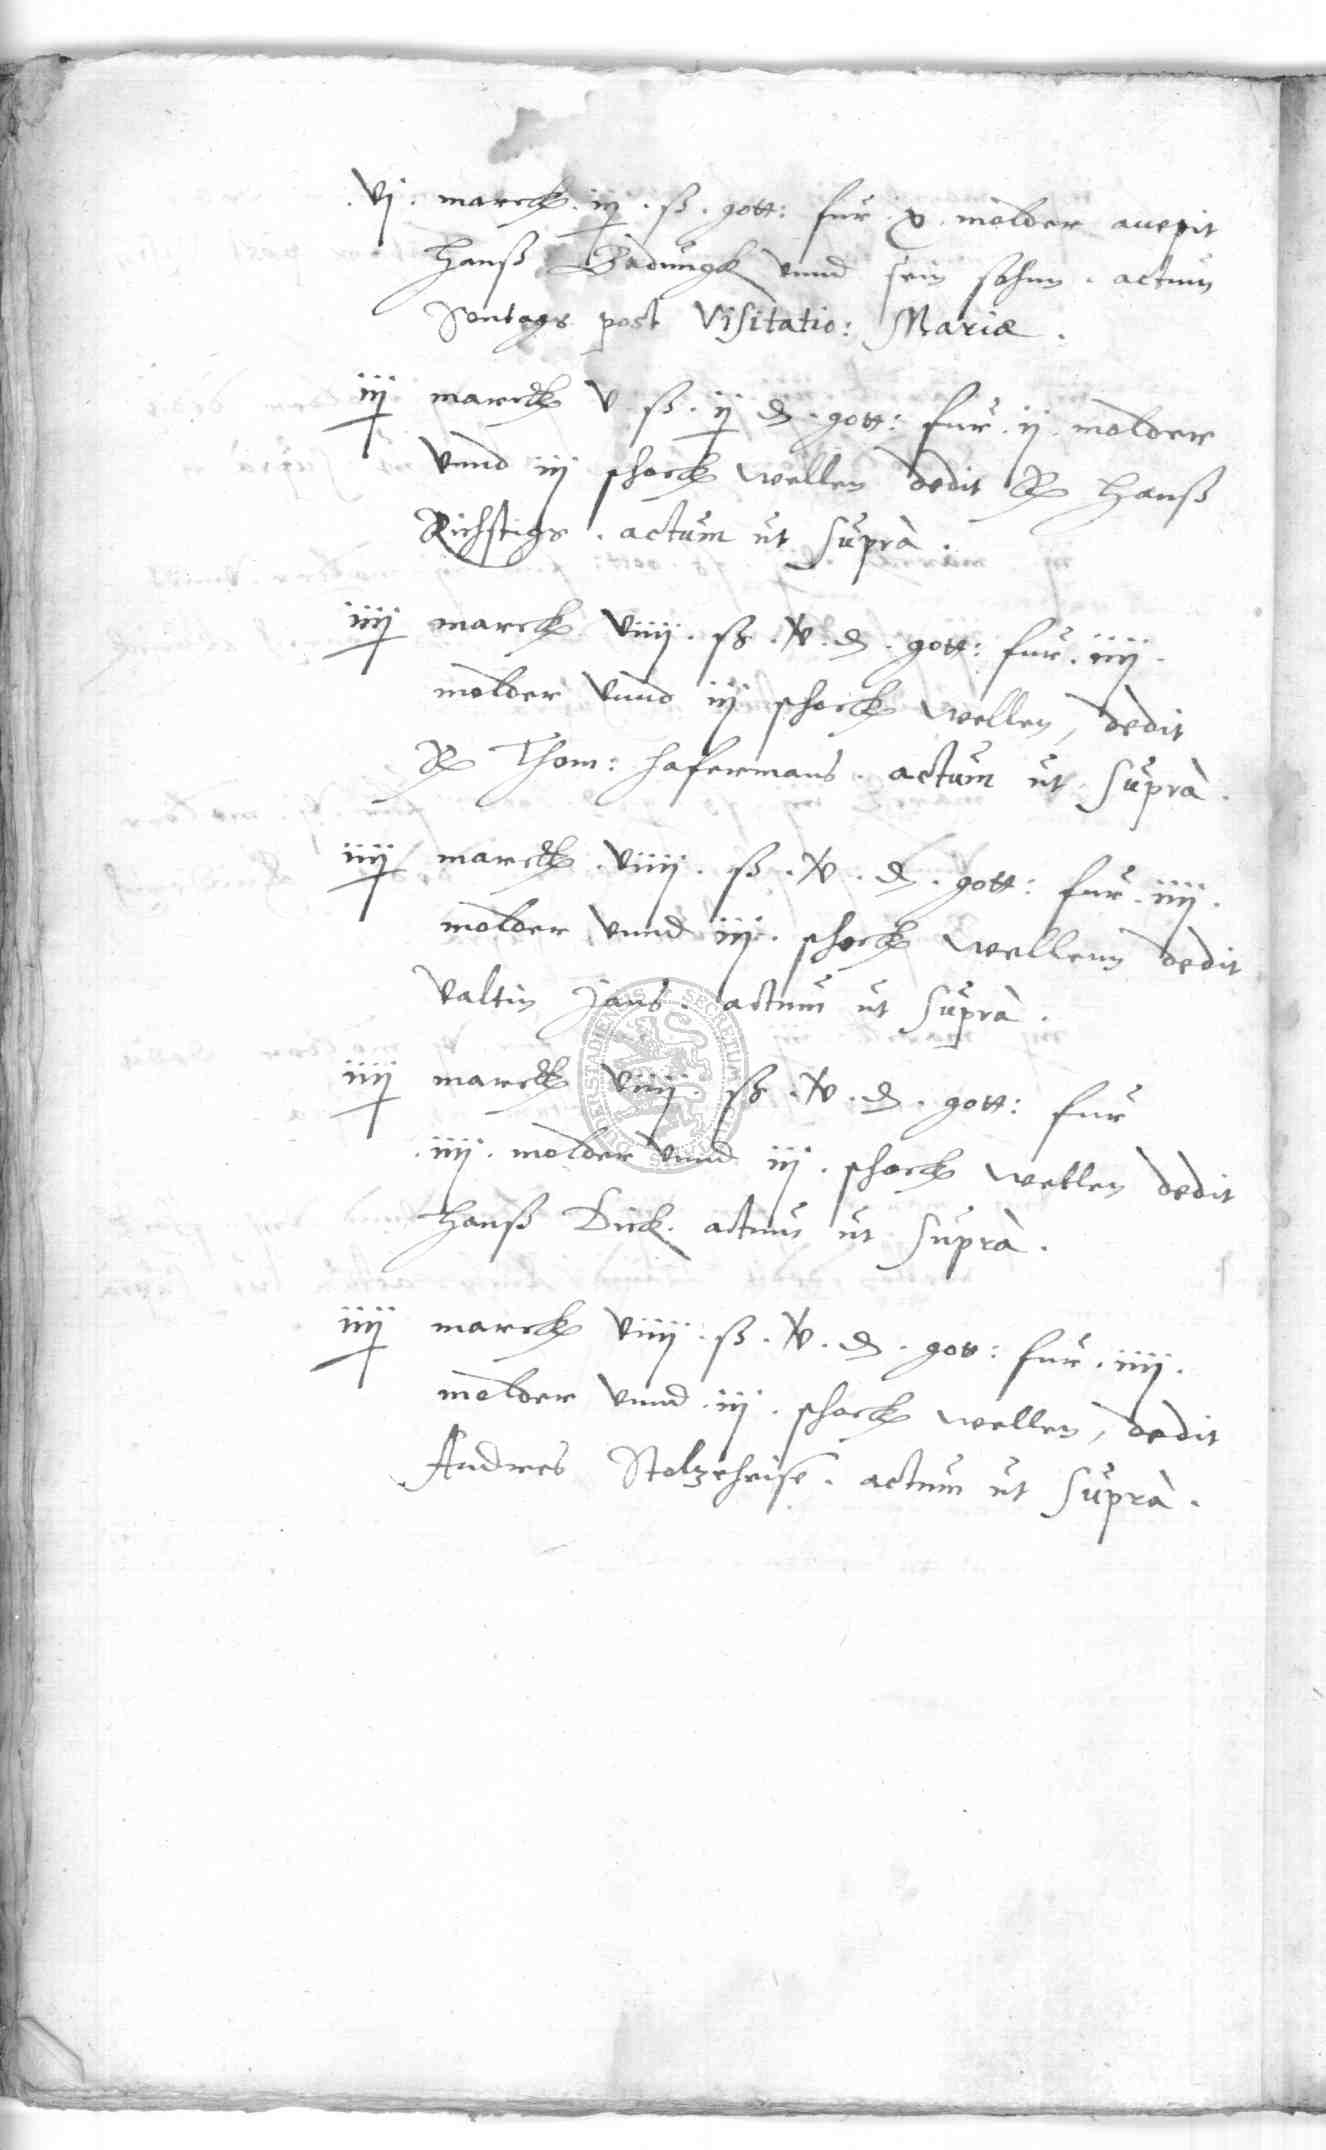 .vj. marck .iij. ß. gott: fur .x. molder accepit
Hanß Badungk vnnd sein sohnn. actum
Sontags post Visitatio: Mariæ.
iij marck v ß. ij ₰. gott: fur .ij. molder
vnnd iij schock wellen dedit R Hanß
Richstigs. actum ut supra.
iiij marck viiij. ß. v. ₰. gott: fur. iiij.
molder vnnd iij schock wellen, dedit
R Thom: hafermans. actum ut supra.
iiij marck .viiij. ß. v. ₰. gott: fur. iiij.
molder vnnd iij. schock wellenn dedit
Valtin Jans. actum ut supra.
iiij marck viiij. ß. v. ₰. gott: fur
.iiij. molder vnnd iij. schock wellen dedit
Hanß Dick. actum ut supra.
iiij marck viiij. ß. v. ₰. gott: fur. iiij.
molder vnnd .iij. schock wellen, dedit
Andres Stolzeheise. actum ut supra.
SECRETUM DUDERSTADIENSIS